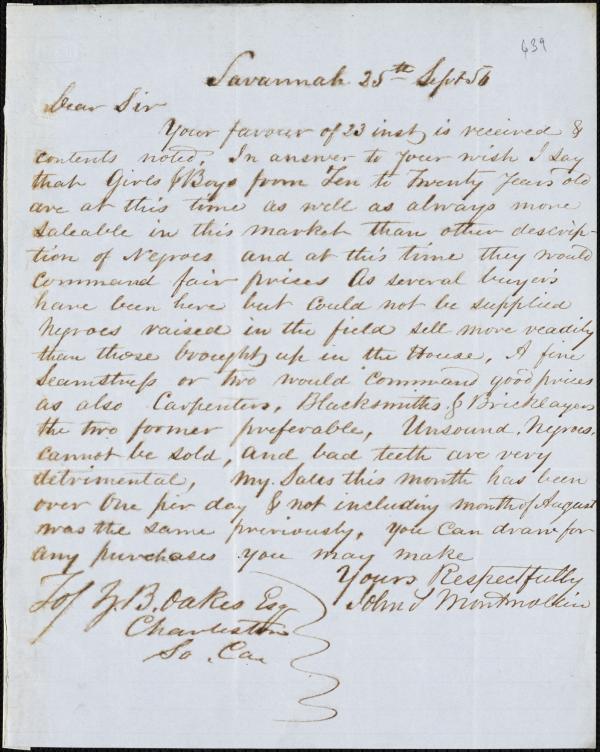 439
Savannah 25th Sept 56
Dear Sir
Your favour of 23 inst, is received &
contents noted. In answer to your wish I say
that Girls & Boys from Ten to Twenty Years old
are at this time as well as always more
saleable in this market than other descrip-
tion of Negroes and at this time they would
command fair prises As several buyers
have been here but could not be supplied
Negroes raised in the field sell more readily
than those brought up in the House, A fine
Seamstress or two would command good prices
as also Carpenters, Blacksmiths & Bricklayers
the two former preferable, Unsound Negroes
cannot be sold, and bad teeth are very
detrimental, My Sales this month has been
over One per day & not including month of August
was the same previously, you can draw for
any purchases you may make
Yours Respectfully
John S Montmollin
To/ Z. B. Oakes Esq
Charleston
So. Ca